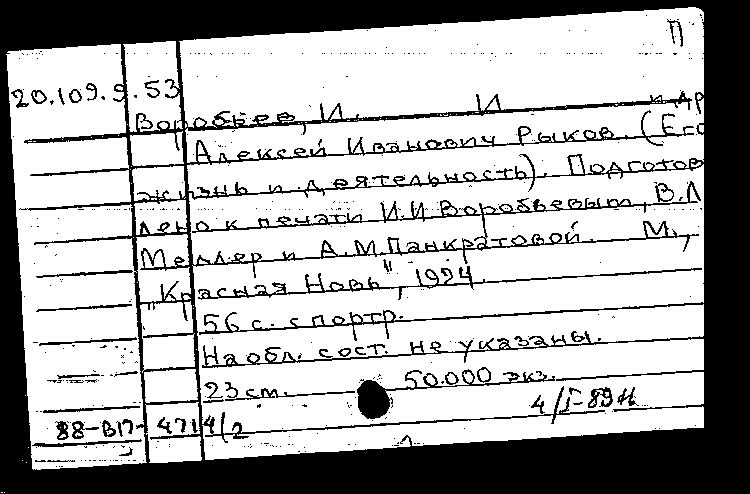 П
20.109.9.53
Воробьев, И. И и др
Алексей Иванович Рыков. (Его
жизнь и деятельность). Подготов
лено к печати И.И.Воробьевым, В.Л
Меллер и А.М.Панкратовой. М.,
„Красная Новь", 1924.
56 с. с портр.
На обл. сост. не указаны.
23 см. 50.000 экз.
4/I-89
88-В17-4714/2